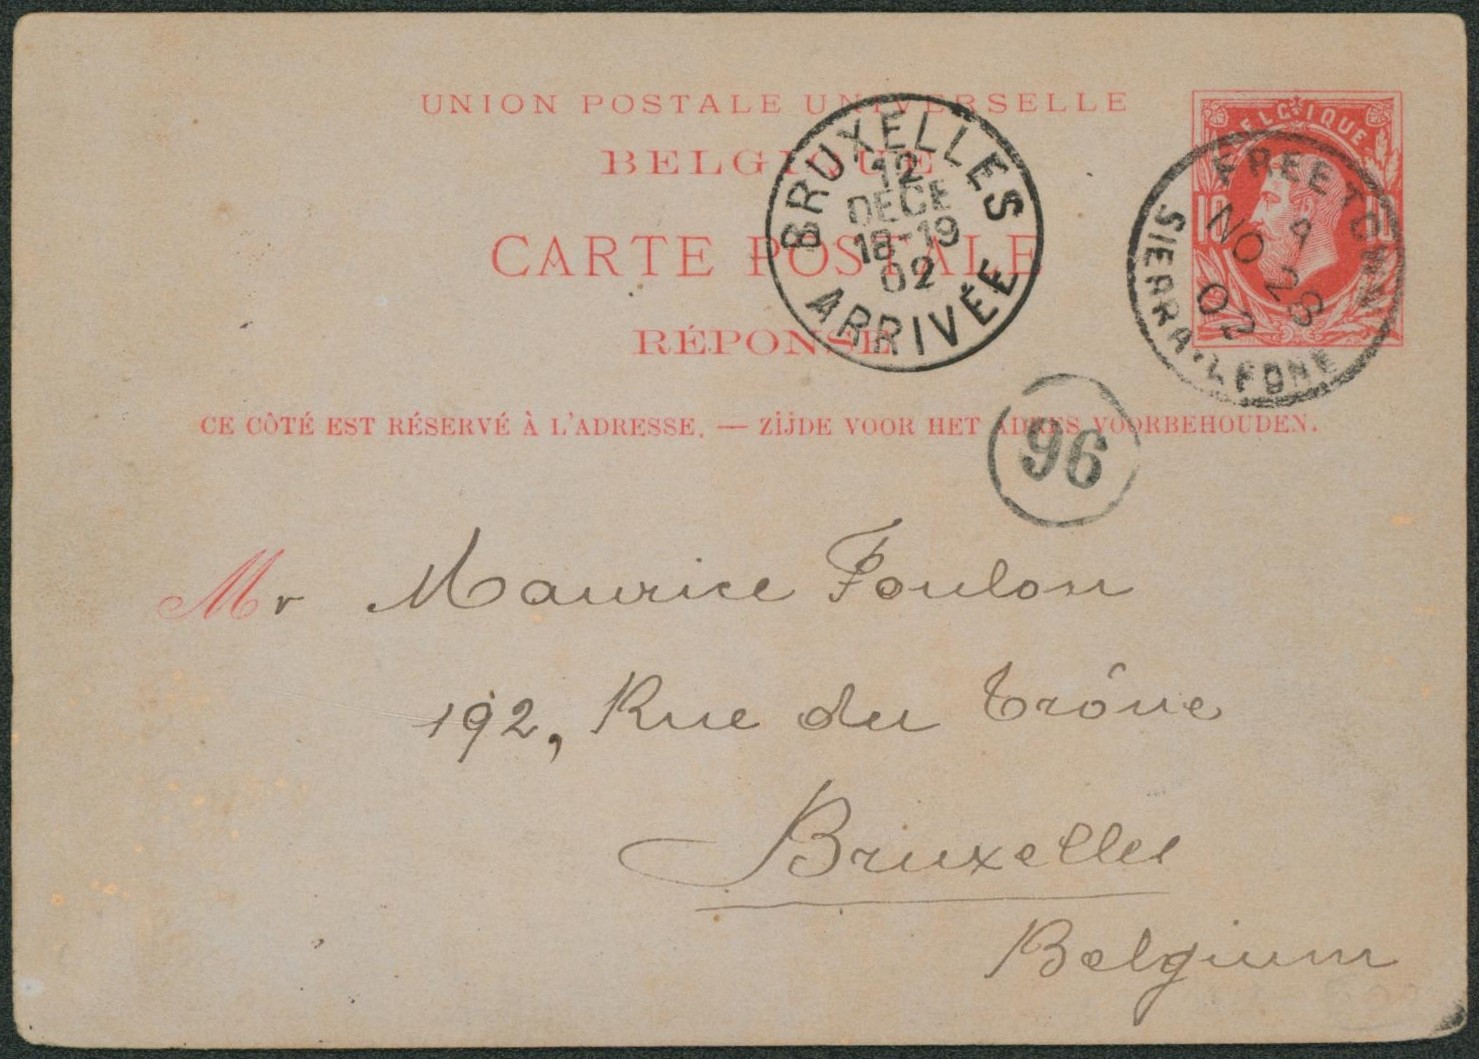 UNION POSTALE UNIVERSELLE
BELGIQUE
CARTE POSTALE
RÉPONSE
CE CÔTÉ EST RÉSERVÉ À L'ADRESSE. — ZIJDE VOOR HET ADRES VOORBEHOUDEN.
BELGIQUE
10
BRUXELLES
12
DECE
18-19
02
ARRIVÉE
8
FREETOWN
A
NO 28
02
SIERRA-LEONE
96
Mr Maurice Foulon
192, Rue du Trône
Bruxelles
Belgium